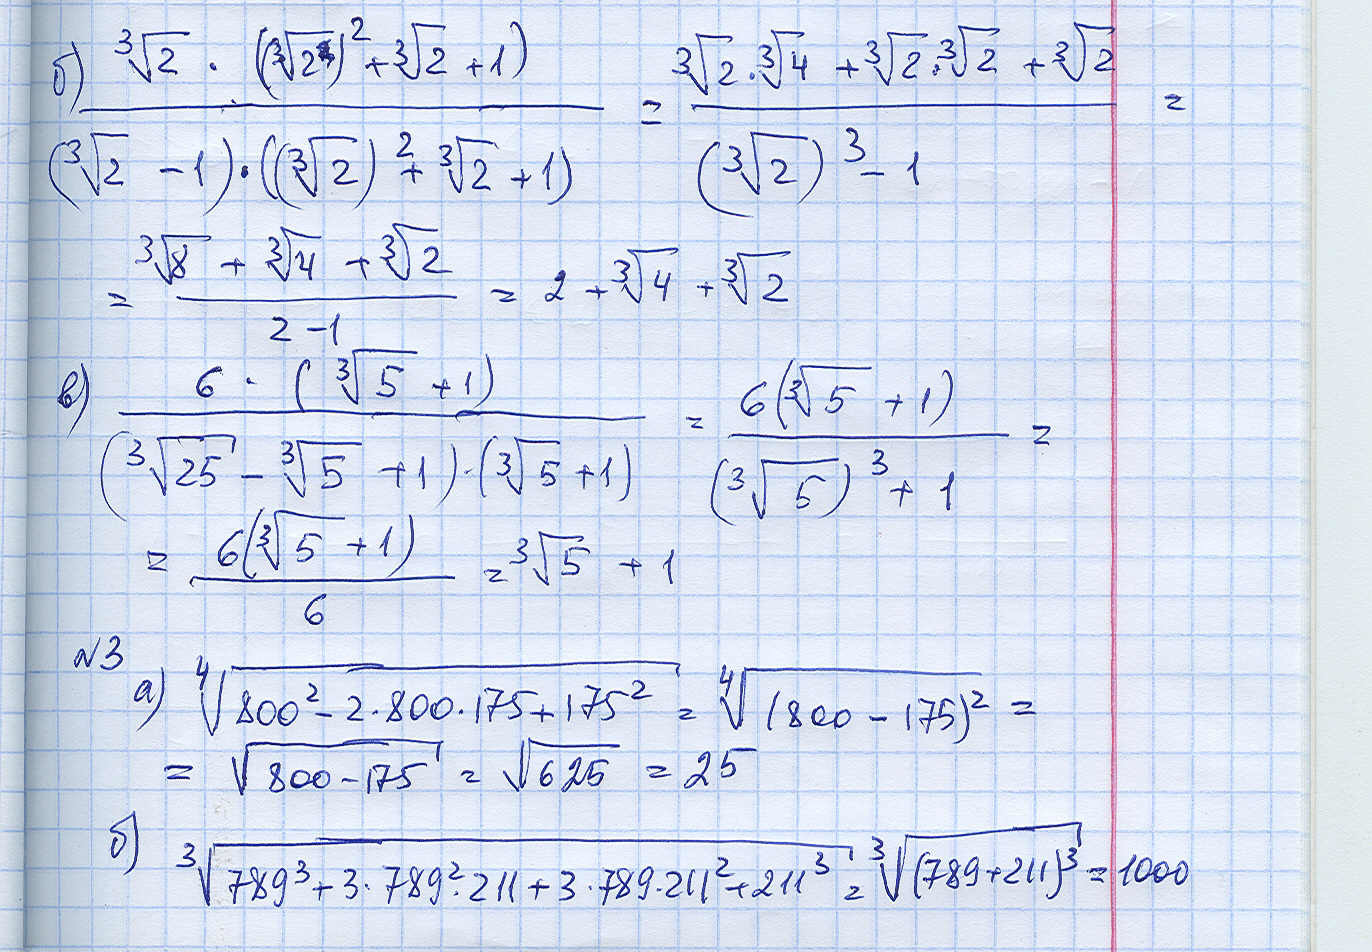 б) ∛2 · ((∛2)² + ∛2 + 1) / ((∛2 - 1)·((∛2)² + ∛2 + 1)) = (∛2·∛4 + ∛2·∛2 + ∛2) / ((∛2)³ - 1) =
= (∛8 + ∛4 + ∛2) / (2 - 1) = 2 + ∛4 + ∛2
в) 6 · (∛5 + 1) / ((∛25 - ∛5 + 1)·(∛5 + 1)) = 6(∛5 + 1) / ((∛5)³ + 1) =
= 6(∛5 + 1) / 6 = ∛5 + 1
№3
а) ∜(800² - 2·800·175 + 175²) = ∜((800 - 175)²) =
= √(800 - 175) = √625 = 25
б) ∛(789³ + 3·789²·211 + 3·789·211² + 211³) = ∛((789 + 211)³) = 1000